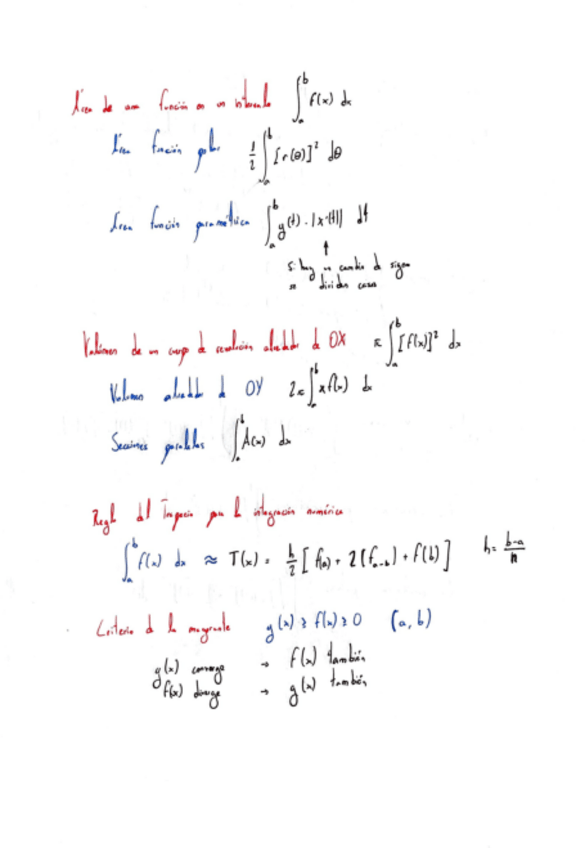 Área de una función en un intervalo ∫_a^b f(x) dx
Área función polar 1/2 ∫_a^b [r(θ)]² dθ
Área función paramétrica ∫_a^b y(t)·|x'(t)| dt
↑
Si hay un cambio de signo
se dividen casos
Volúmen de un cuerpo de revolución alrededor de OX π ∫_a^b [f(x)]² dx
Volumen alrededor de OY 2π ∫_a^b x f(x) dx
Secciones paralelas ∫_a^b A(x) dx
Regla del Trapecio para la integración numérica
∫_a^b f(x) dx ≈ T(x) = h/2 [f(a) + 2(f_{a-b}) + f(b)] h = b-a/n
Criterio de la mayorante g(x) ≥ f(x) ≥ 0 (a, b)
g(x) converge → f(x) también
f(x) diverge → g(x) también